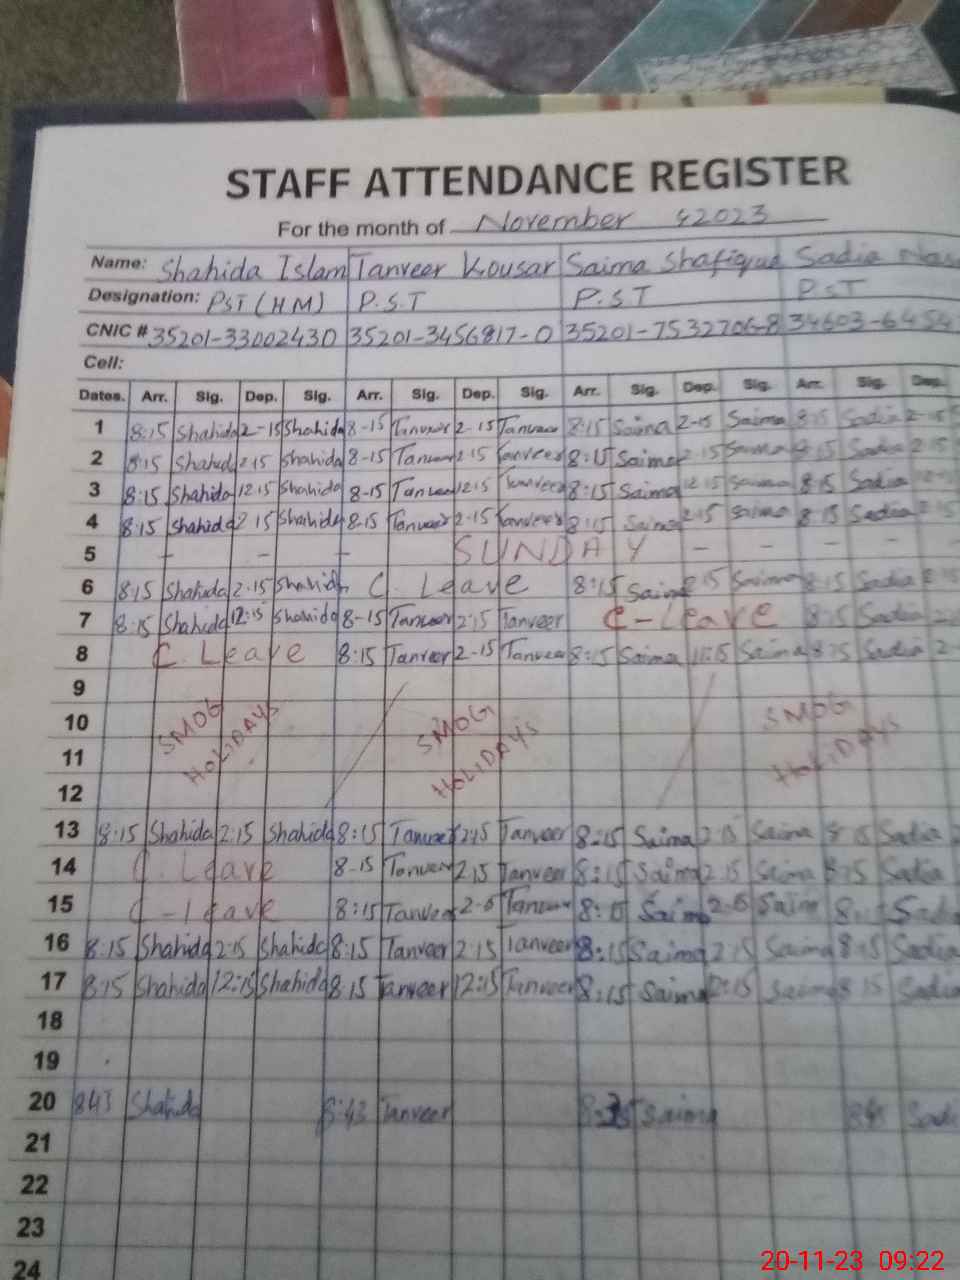 STAFF ATTENDANCE REGISTER
For the month of November 2023
Name: Shahida Islam Tanveer Kousar Saima Shafique Sadia
Designation: PST (HM) P.S.T P.S.T P.S.T
CNIC # 35201-33002430 35201-3456817-0 35201-7532706-8 34603-6454
Cell:
Dates. Arr. Sig. Dep. Sig. Arr. Sig. Dep. Sig. Arr. Sig. Dep. Sig. Arr. Sig. Dep.
1 8:15 Shahida 2-15 Shahida 8-15 Tanveer 2-15 Tanveer 8:15 Saima 2-15 Saima 8:15 Sadia 2-15
2 8:15 Shahid 2 15 Shahida 8-15 Tanveer 2 15 Tanveer 8:15 Saima 2 15 Saima 8 15 Sadia 2 15
3 8:15 Shahida 12 15 Shahida 8-15 Tanveer 12 15 Tanveer 8:15 Saima 12 15 Saima 8 15 Sadia
4 8:15 Shahida 2 15 Shahida 8-15 Tanveer 2-15 Tanveer 8:15 Saima 2-15 Saima 8 15 Sadia 2 15
5 - - - SUNDAY - - - -
6 8:15 Shahida 2:15 Shahida C. Leave 8:15 Saima 2 15 Saima 8:15 Sadia
7 8:15 Shahida 12:15 Shahida 8-15 Tanveer 2:15 Tanveer C-Leave 8:15 Sadia
8 C. Leave 8:15 Tanveer 2-15 Tanveer 8:15 Saima Saima 8:15 Sadia 2-
9
10 SMOG SMOG SMOG
11 HOLIDAYS HOLIDAYS HOLIDAYS
12
13 8:15 Shahida 2:15 Shahida 8:15 Tanveer 2:15 Tanveer 8:15 Saima 2 15 Saima 8 15 Sadia
14 C. Leave 8-15 Tanveer 2,15 Tanveer 8:15 Saima 2 15 Saima 8:15 Sadia
15 C-Leave 8:15 Tanveer Tanveer Saima Saim Sadia
16 8:15 Shahida 2:15 Shahida 8:15 Tanveer 2:15 Tanveer 8:15 Saima 2 15 Saima 8:15 Sadia
17 8:15 Shahida 12:15 Shahida 8,15 Tanveer 12:15 Tanveer 8:15 Saima Saima 8 15 Sadia
18
19
20 843 Shahida 8:43 Tanveer Saima Sadi
21
22
23
24
20-11-23 09:22